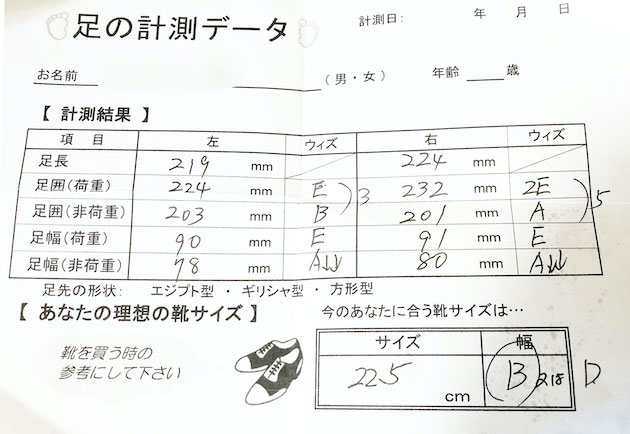 足の計測データ
計測日: 年 月 日
お名前 (男・女) 年齢 歳
【 計測結果 】
項 目 左 ウィズ 右 ウィズ
足長 219 mm 224 mm
足囲(荷重) 224 mm E 232 mm 2E
足囲(非荷重) 203 mm B 201 mm A
3 5
足幅(荷重) 90 mm E 91 mm E
足幅(非荷重) 78 mm A↓↓ 80 mm A↓↓
足先の形状: エジプト型 ・ ギリシャ型 ・ 方形型
【 あなたの理想の靴サイズ 】
今のあなたに合う靴サイズは…
サイズ 幅
靴を買う時の
参考にして下さい
22.5 cm B D